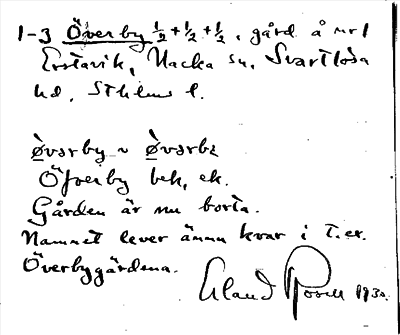 1-3 Överby ½+½+½, gård å nr 1
Erstavik, Nacka sn, Svartlösa
hd, Sthlms l.
Øvərby ~ Øvərbi
Öfverby bek, ek.
Gården är nu borta.
Namnet lever ännu kvar i t.ex.
Överbygärdena.
Erland Rosell 1930.